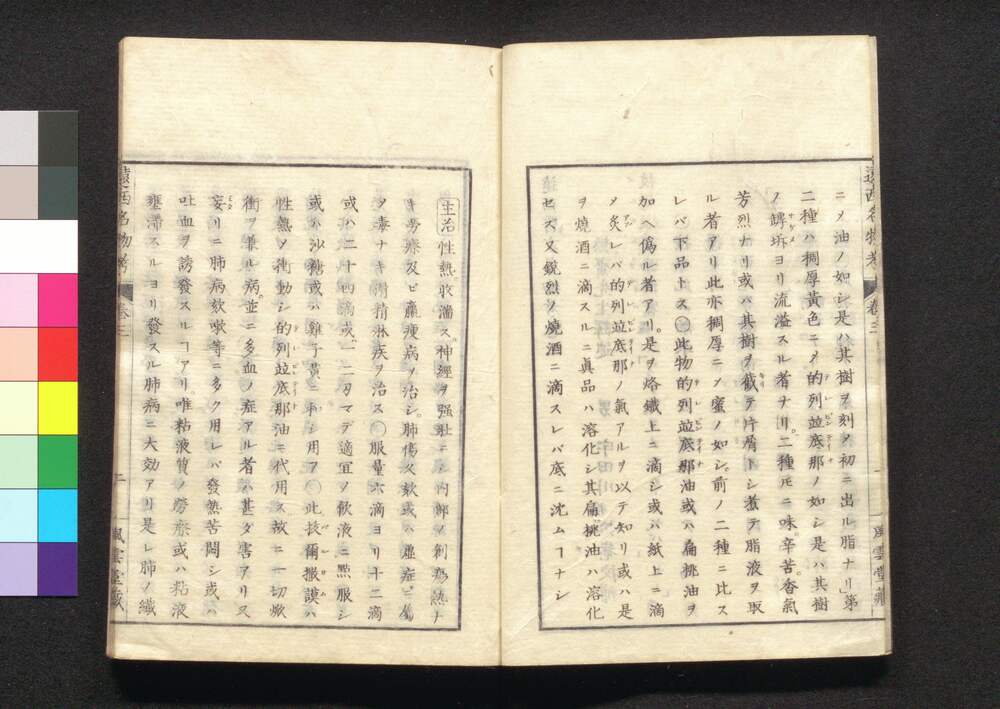 遠西名物考 卷三
ニメ油ノ如シ是ハ其樹ヲ刻メ初ニ出ル脂ナリ」第
二種ハ稠厚黃色ニメ的列並底那ノ如シ是ハ其樹
ノ罅坼ヨリ流溢スル者ナリ。二種𪜈ニ味辛苦。香氣
芳烈ナリ或ハ其樹ヲ截テ片屑トシ煮テ脂液ヲ取
ル者アリ此亦稠厚ニメ蜜ノ如シ。前ノ二種ニ比ス
レバ下品トス〇此物的列並底那油或ハ扁桃油ヲ
加ヘ偽ル者アリ。是ヲ烙鐵上ニ滴シ或ハ紙上ニ滴
メ炙レバ的列並底那ノ氣アルヲ以テ知リ或ハ是
ヲ燒酒ニ滴スルニ眞品ハ溶化シ其扁桃油ハ溶化
セズ又鋭烈ノ燒酒ニ滴スレバ底ニ沈ムヿナシ
風雲堂藏
主治性熱。收濇ス。神經ヲ强壯ニシ内部ノ創瘍熱ナ
キ勞瘵及ビ羸瘦病ヲ治シ。肺傷久欬或ハ虚症ニ屬
メ毒ナキ精淋疾ヲ治ス〇服量六滴ヨリ十二滴
或ハ二十四滴或一二刃マデ適宜ノ飲液ニ點服シ
或ハ沙糖或ハ雞子黃ニ和シ用フ〇此拔爾撒謨ハ
性熱ノ衝動シ的列並底那油ニ代用ス故ニ一切焮
衝ヲ兼ル病。並ニ多血ノ症アル者ハ甚ダ害アリス
妄リニ肺病欬嗽等ニ多ク用レバ發熱苦悶シ或ハ
吐血ヲ誘發スルヿアリ唯粘液質ノ勞瘵或ハ粘液
壅滯スルヨリ發スル肺病ニ大効アリ是レ肺ノ纎
遠西名物考 卷三 二 風雲堂藏